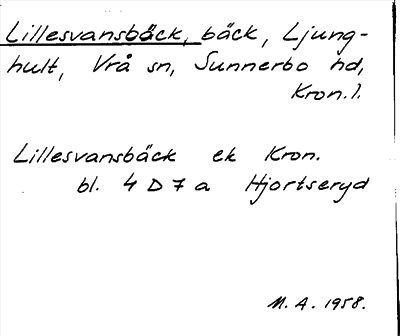 Lillesvansbäck, bäck, Ljung-
hult, Vrå sn, Sunnerbo hd,
Kron.l.
Lillesvansbäck ek Kron.
bl. 4 D 7 a Hjortseryd
M.A. 1958.